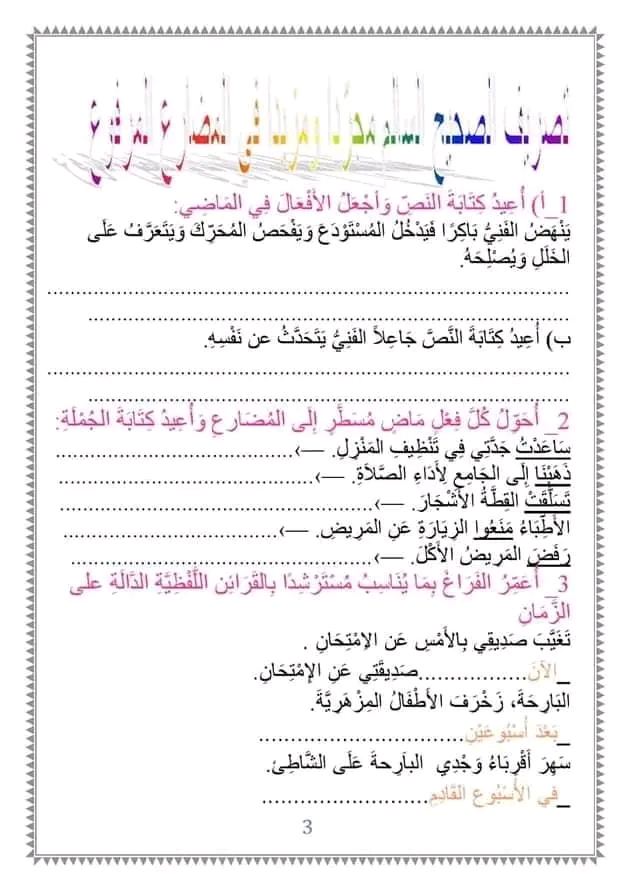 تصريف الصحيح السالم مجردا ومزيدا في المضارع المرفوع
1_أ) أُعِيدُ كِتَابَةَ النَصِّ وَاجْعَلُ الأَفْعَالَ فِي المَاضِي:
يَنْهَضُ الفَنِيُّ بَاكِرًا فَيَدْخُلُ المُسْتَوْدَعَ وَيَفْحَصُ المُحَرِّكَ وَيَتَعَرَّفُ عَلَى
الخَلَلِ وَيُصْلِحَهُ.
................................................................
................................................................
ب) أُعِيدُ كِتَابَةَ النَّصَّ جَاعِلاً الفَنِيُّ يَتَحَدَّثُ عن نَفْسِهِ.
................................................................
................................................................
2_ أُحَوِّلُ كُلَّ فِعْلٍ مَاضٍ مُسَطَّرٍ إِلَى المُضَارِعِ وَأُعِيدُ كِتَابَةَ الجُمْلَةِ:
سَاعَدْتُ جَدَّتِي فِي تَنْظِيفِ المَنْزِلِ. —›..............................
ذَهَبْنَا إِلَى الجَامِعِ لِأَدَاءِ الصَّلاَةِ. —›..............................
تَسَلَّقَتْ القِطَّةُ الأَشْجَارَ. —›........................................
الأَطِبَّاءُ مَنَعُوا الزِيَارَةَ عَنِ المَرِيضِ. —›..............................
رَفَضَ المَرِيضُ الأَكْلَ. —›........................................
3_ أُعَمِّرُ الفَرَاغَ بِمَا يُنَاسِبُ مُسْتَرْشِدًا بِالقَرَائِنِ اللَّفْظِيَّةِ الدَّالَةِ على
الزَّمَانِ
تَغَيَّبَ صَدِيقِي بِالأَمْسِ عَنِ الاِمْتِحَانِ .
_الآنَ.................صَدِيقَتِي عَنِ الإِمْتِحَانِ.
البَارِحَةَ، زَخْرَفَ الأَطْفَالُ المِزْهَرِيَّةَ.
_بَعْدَ أُسْبُوعَيْنِ..............................
سَهِرَ أَقْرِبَاءُ وَجْدِي البَارِحةَ عَلَى الشَّاطِئِ.
_فِي الأُسْبُوعِ القَادِمِ.........................
3